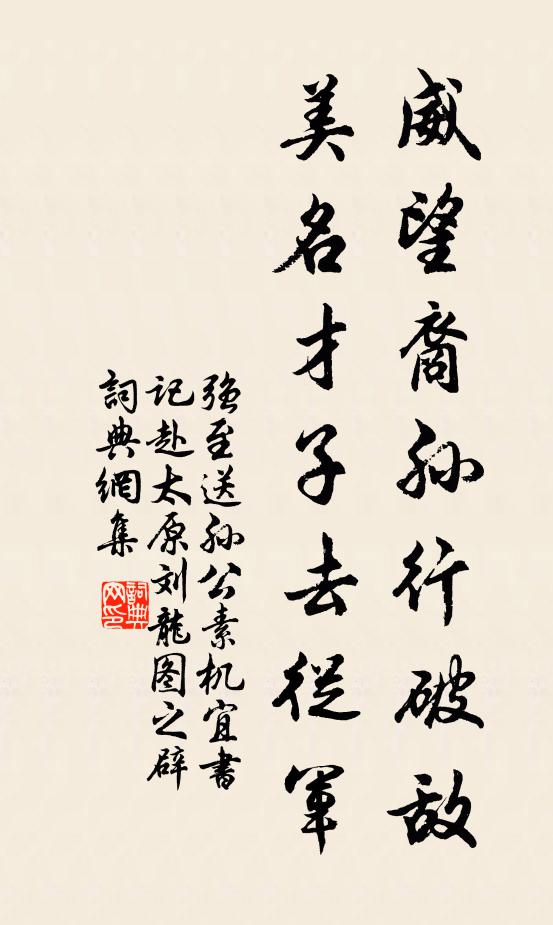 威望裔孙行破敌
美名才子去從軍
强至送孙公素机宜書
记赴太原刘龍图之辟
詞典網集
詞典
网印